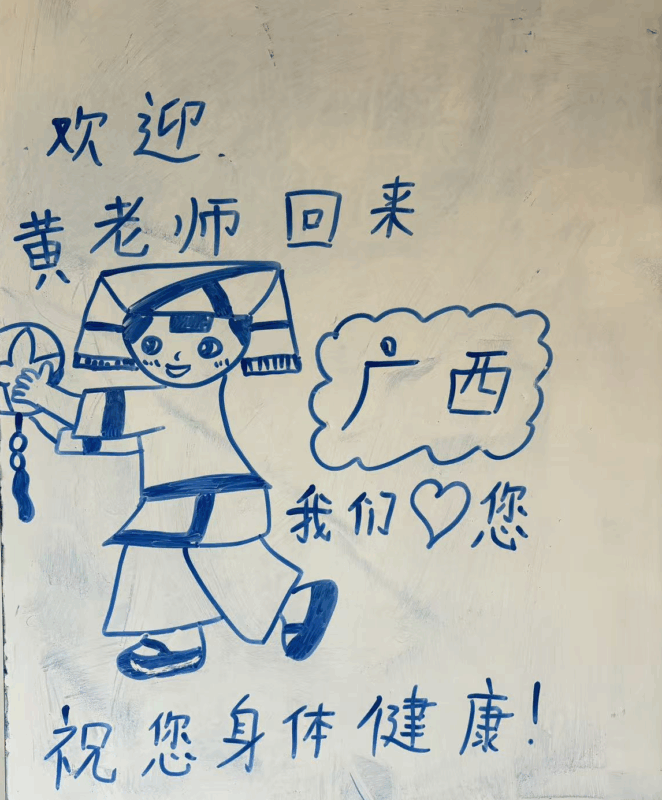 欢迎
黄老师回来
广西
我们♡您
祝您身体健康!